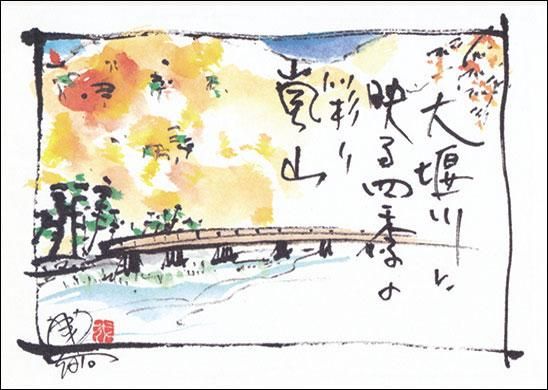 大堰川に
映る四季の
彩り
嵐山